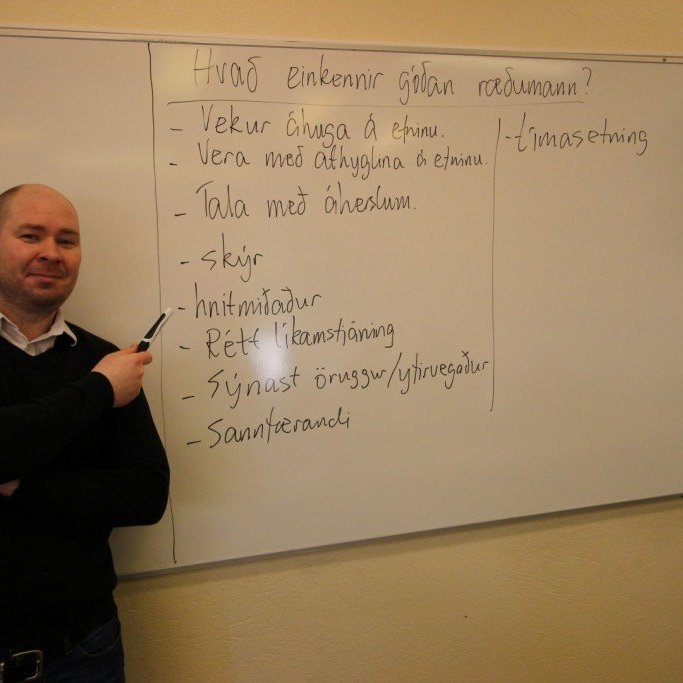 Hvað einkennir góðan ræðumann?
- Vekur áhuga á efninu.
- Vera með athyglina á efninu.
- Tala með áherslum.
- skýr
- hnitmiðaður
- Rétt líkamstjáning
- Sýnast öruggur/yfirvegaður
- Sannfærandi
- tímasetning